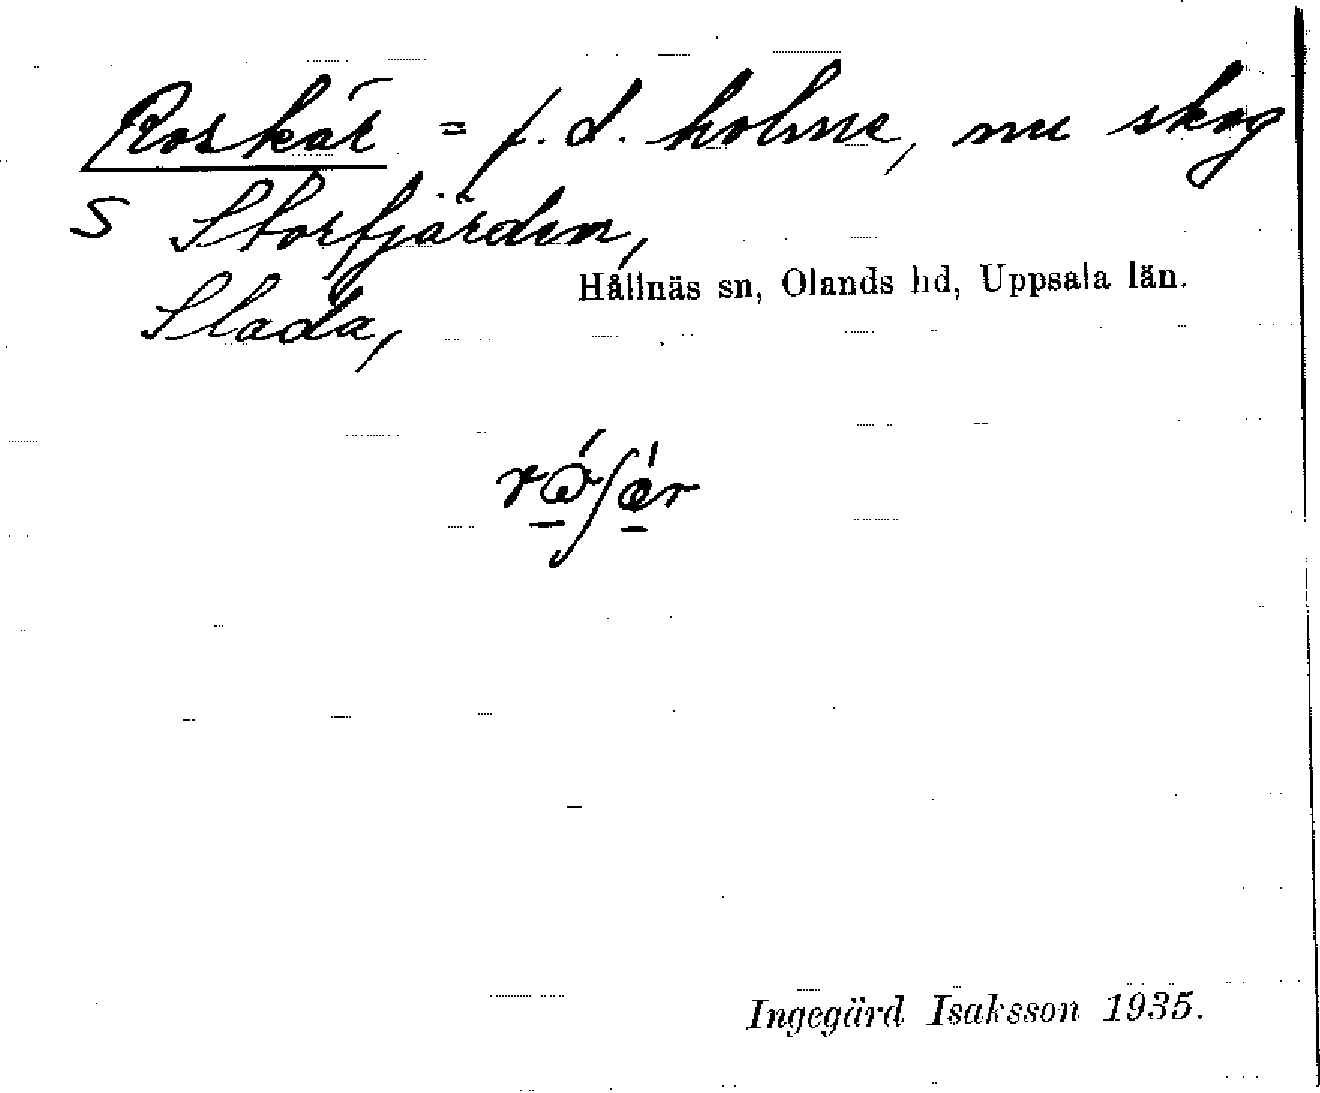 Roskär = f.d. holme, nu skog
S Storfjärden,
Slada,
Hållnäs sn, Olands hd, Uppsala län.
Ingegärd Isaksson 1935.